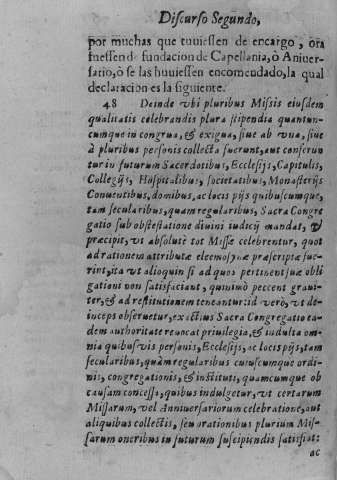 Discurso Segundo,
por muchas que tuuiessen de encargo, ora
fuessen de fundacion de Capellania, ò Aniuer-
sario, ò se las huuiessen encomendado, la qual
declaracion es la siguiente.
48 Deinde vbi pluribus Missis eiusdem
qualitatis celebrandis plura stipendia quantun-
cumque incongrua, & exigua, siue ab vna, siue
à pluribus personis collecta fuerunt, aut conferun
tur in futurum Sacerdotibus, Ecclesijs, Capitulis,
Collegijs, Hospitalibus, societatibus, Monasterijs
Conuentibus, domibus, ac locis pijs quibuscumque,
tam secularibus, quam regularibus, Sacra Congre
gatio sub obstestatione diuini iudicij mandat, &
præcipit, vt absolutè tot Missæ celebrentur, quot
ad rationem attributæ eleemosynæ præscriptæ fue-
rint, ita vt alioquin si ad quos pertinent suæ obli
gationi non satisfaciant, quinimò peccent graui-
ter, & ad restitutionem teneantur: id verò, vt de-
inceps obseruetur, exactius Sacra Congregatio ea-
dem authoritate reuocat priuilegia, & indulta om-
nia quibusvis personis, Ecclesijs, ac locis pijs, tam
secularibus, quàm regularibus cuiuscumque ordi-
nis, congregationis, & instituti, quamcumque ob
causam concessa, quibus indulgetur, vt certarum
Missarum, vel Anniuersariorum celebratione, aut
aliquibus collectis, seu orationibus plurium Mis-
sarum oneribus in futurum suscipiendis satisfiat:
ac